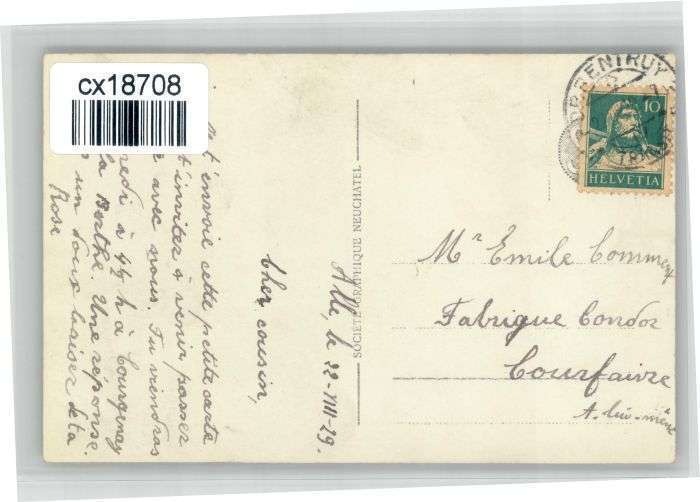 cx18708
PORRENTRUY
TRANSIT
10
HELVETIA
SOCIÉTÉ GRAPHIQUE NEUCHATEL
Alle, le 22-VIII-29.
Cher cousin,
t'envoie cette petite carte
t'inviter à venir passer
avec nous. Tu viendras
redi à 4½ h à Courgenay
la Berthe. Une réponse.
un doux baiser de ta
Rose
Mr Emile Comment
Fabrique Condor
Courfaivre
A lui-même